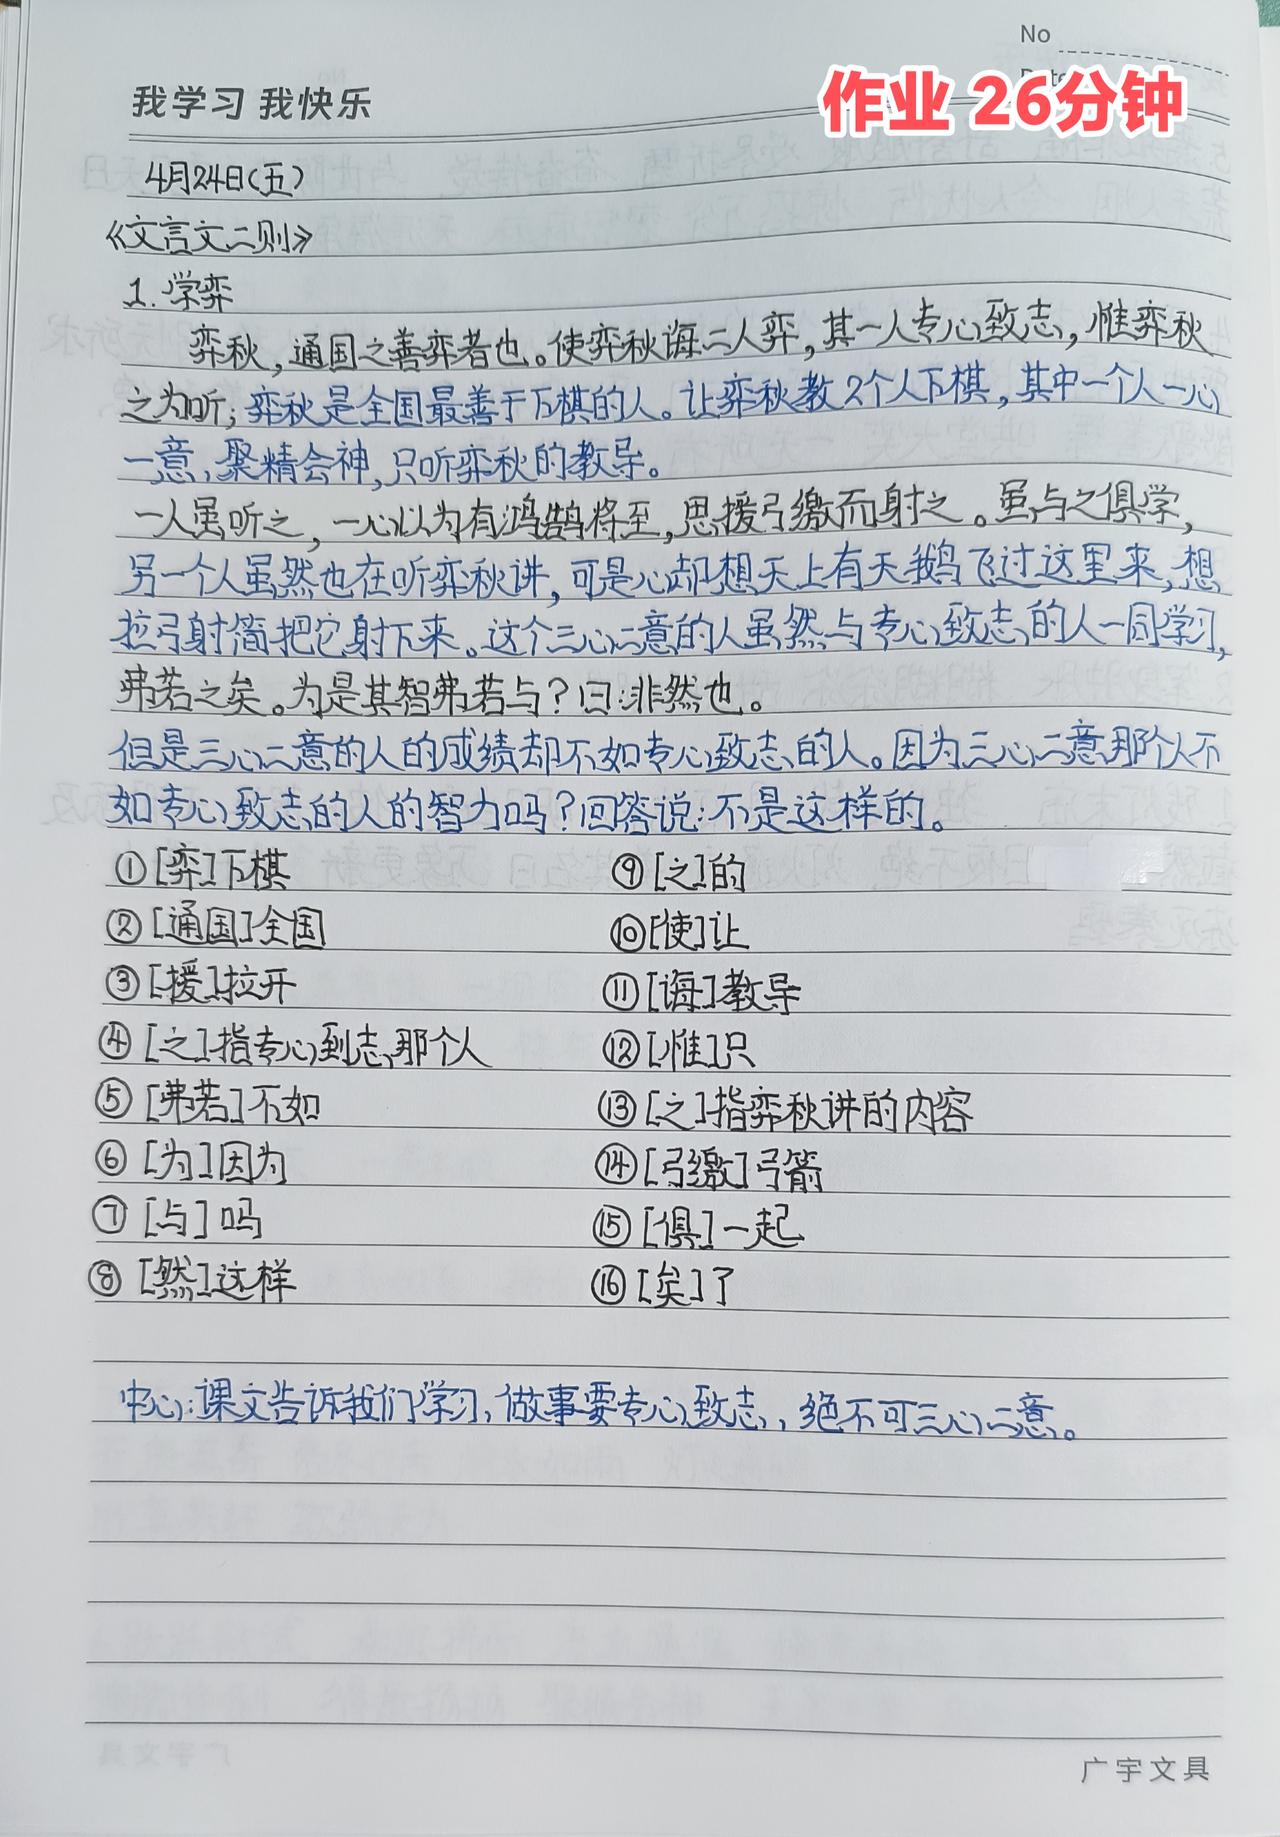 No
作业 26分钟
我学习 我快乐
4月24日(五)
《文言文二则》
1. 学弈
弈秋，通国之善弈者也。使弈秋诲二人弈，其一人专心致志，惟弈秋
之为听；弈秋是全国最善于下棋的人。让弈秋教2个人下棋，其中一个人一心
一意、聚精会神，只听弈秋的教导。
一人虽听之，一心以为有鸿鹄将至，思援弓缴而射之。虽与之俱学，
另一个人虽然也在听弈秋讲，可是心却想天上有天鹅飞过这里来，想
拉弓射箭把它射下来。这个三心二意的人虽然与专心致志的人一同学习，
弗若之矣。为是其智弗若与？曰：非然也。
但是三心二意的人的成绩却不如专心致志的人。因为三心二意那个人不
如专心致志的人的智力吗？回答说：不是这样的。
①[弈]下棋 ⑨[之]的
②[通国]全国 ⑩[使]让
③[援]拉开 ⑪[诲]教导
④[之]指专心到志那个人 ⑫[惟]只
⑤[弗若]不如 ⑬[之]指弈秋讲的内容
⑥[为]因为 ⑭[弓缴]弓箭
⑦[与]吗 ⑮[俱]一起
⑧[然]这样 ⑯[矣]了
中心：课文告诉我们学习、做事要专心致志，绝不可三心二意。
广宇文具